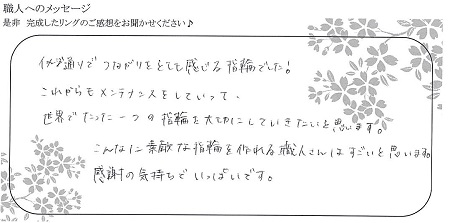 職人へのメッセージ
是非 完成したリングのご感想をお聞かせください♪
イメージ通りでつながりをとても感じる指輪でした!
これからもメンテナンスをしていって、
世界でたった一つの指輪を大切にしていきたいと思います。
こんなに素敵な指輪を作れる職人さんはすごいと思います。
感謝の気持ちでいっぱいです。